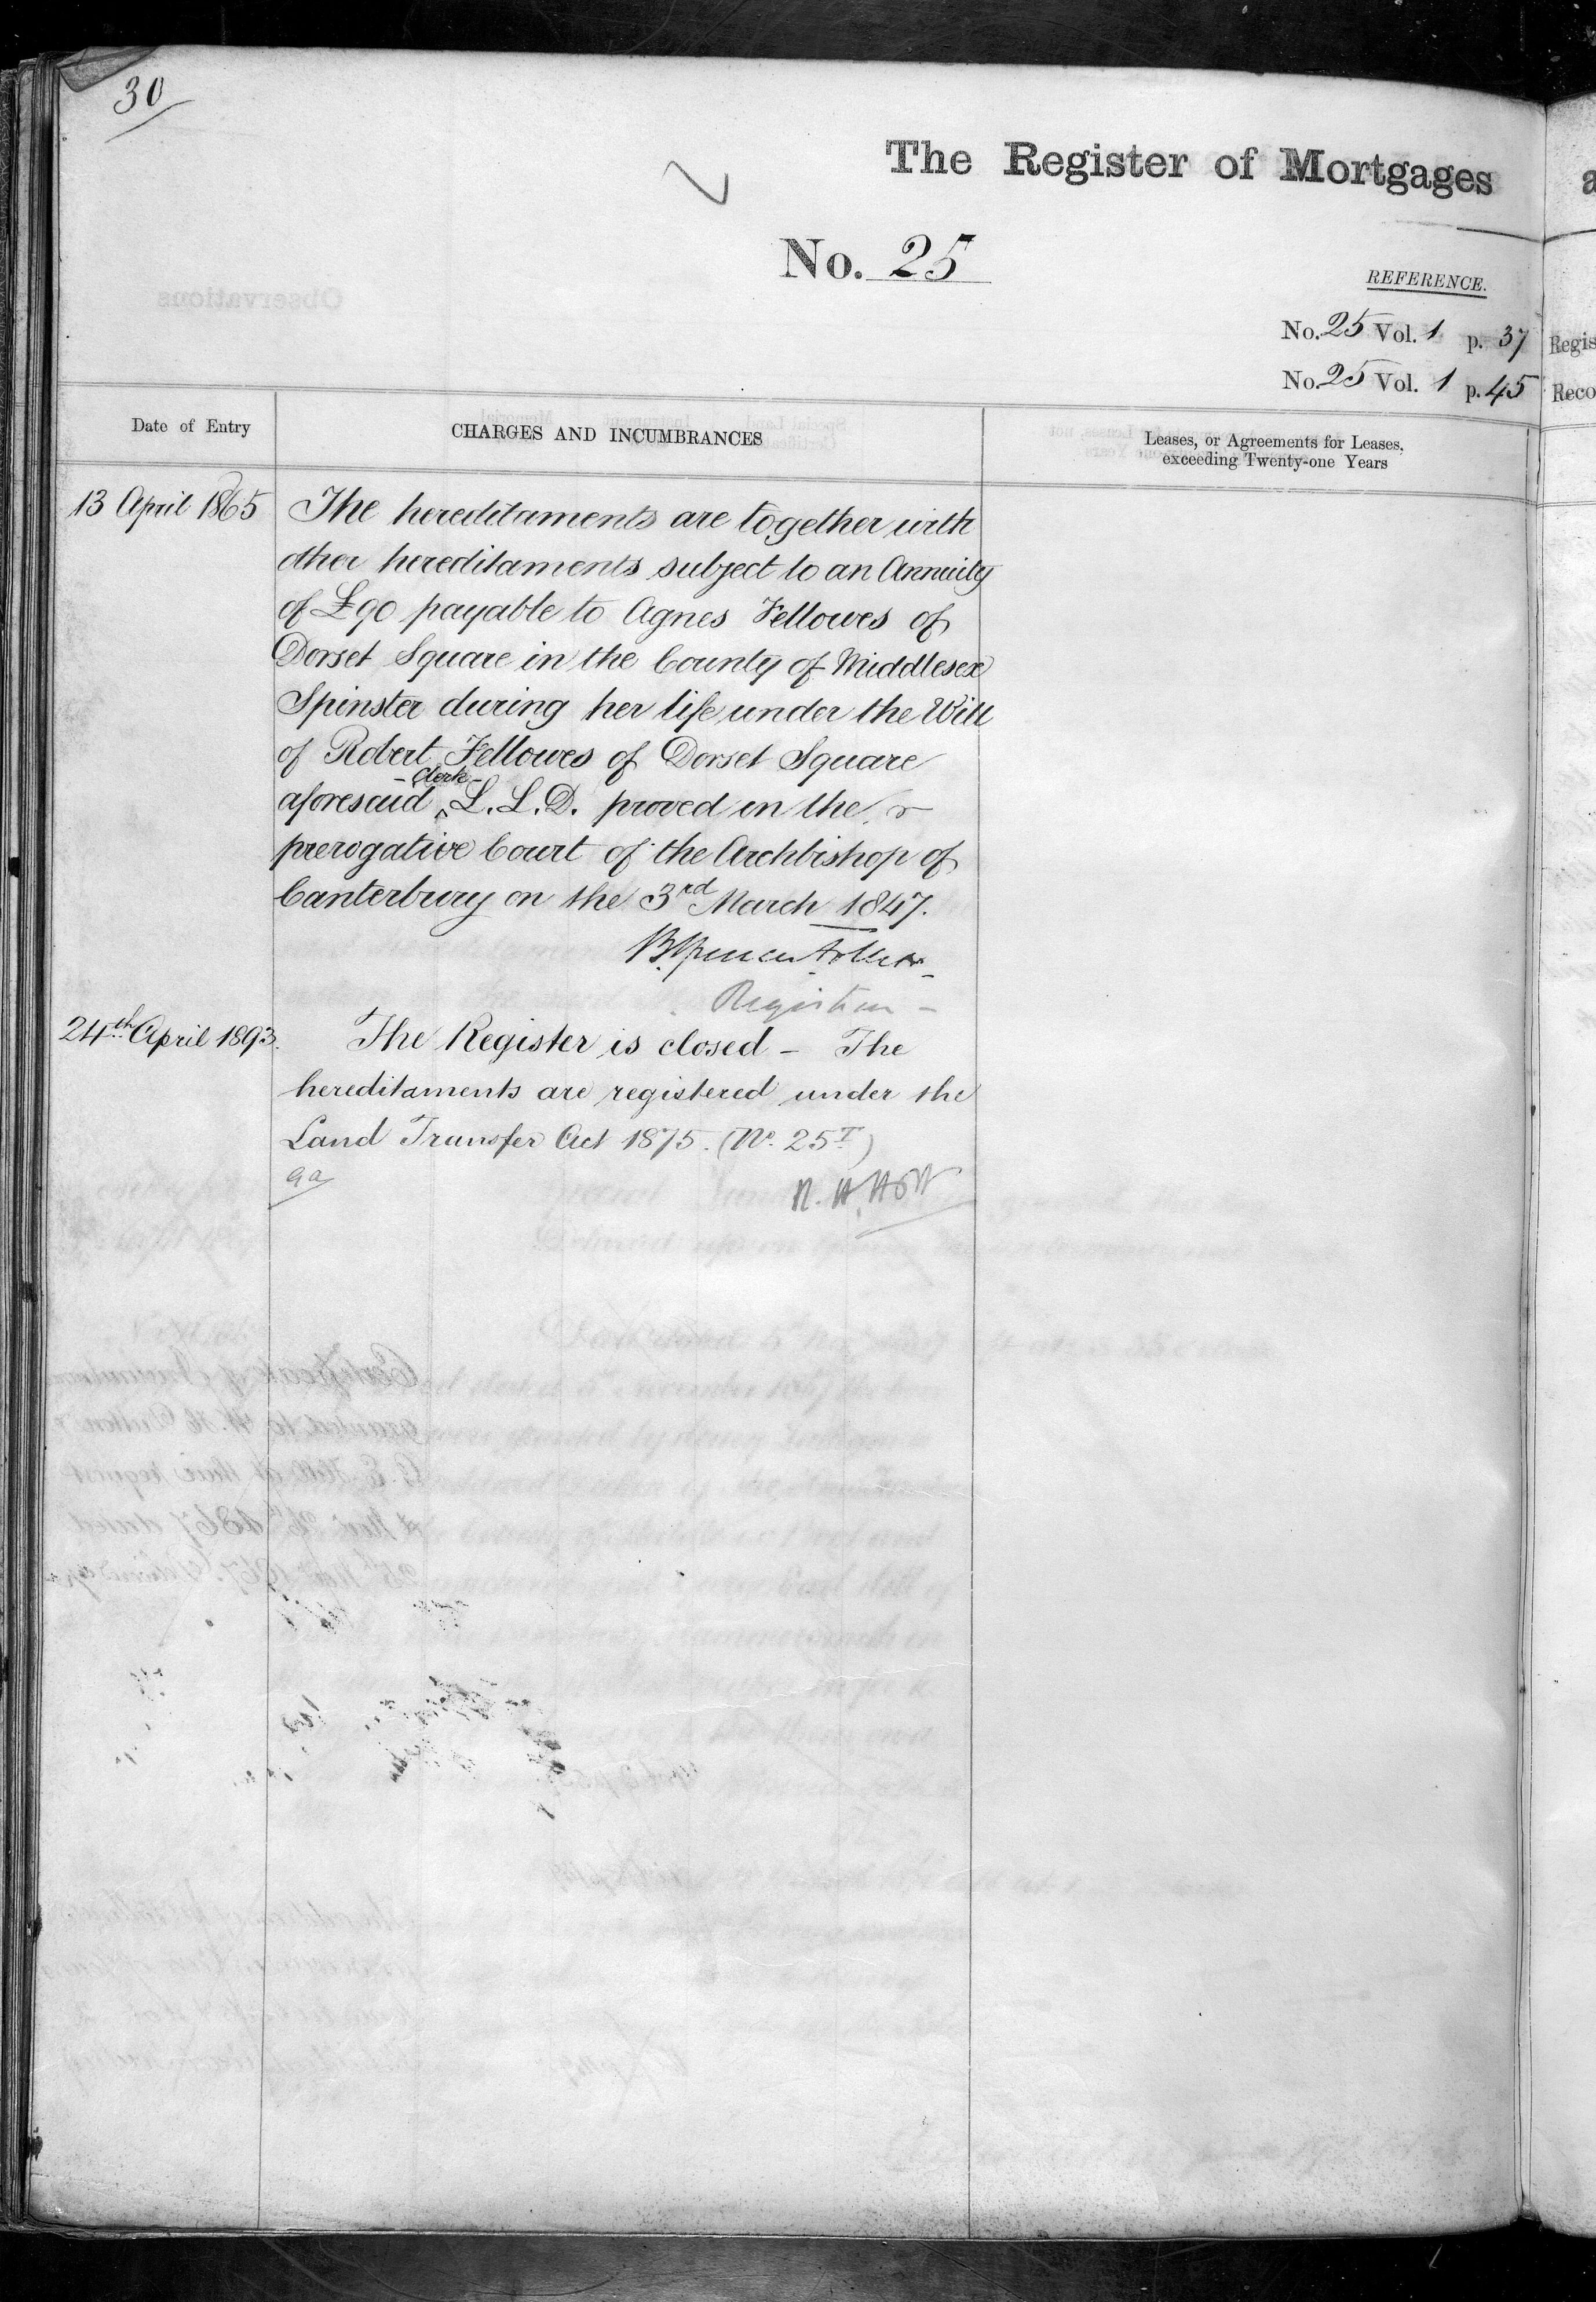 30
The Register of Mortgages
No. 25
REFERENCE.
No. 25 Vol. 1 p. 37
No. 25 Vol. 1 p. 45
Regis
Reco
Date of Entry
CHARGES AND INCUMBRANCES
Leases, or Agreements for Leases,
exceeding Twenty-one Years
13 April 1865
The hereditaments are together with
other hereditaments subject to an Annuity
of £90 payable to Agnes Fellowes of
Dorset Square in the County of Middlesex
Spinster during her life under the Will
of Robert Fellowes of Dorset Square
- Clerk -
aforesaid ^ L. L. D. proved in the
prerogative Court of the Archbishop of
Canterbury on the 3rd March 1847.
Registrar -
24th April 1893.
The Register is closed - The
hereditaments are registered under the
Land Transfer Act 1875. (No. 25T)
R. H. Holt
Observations